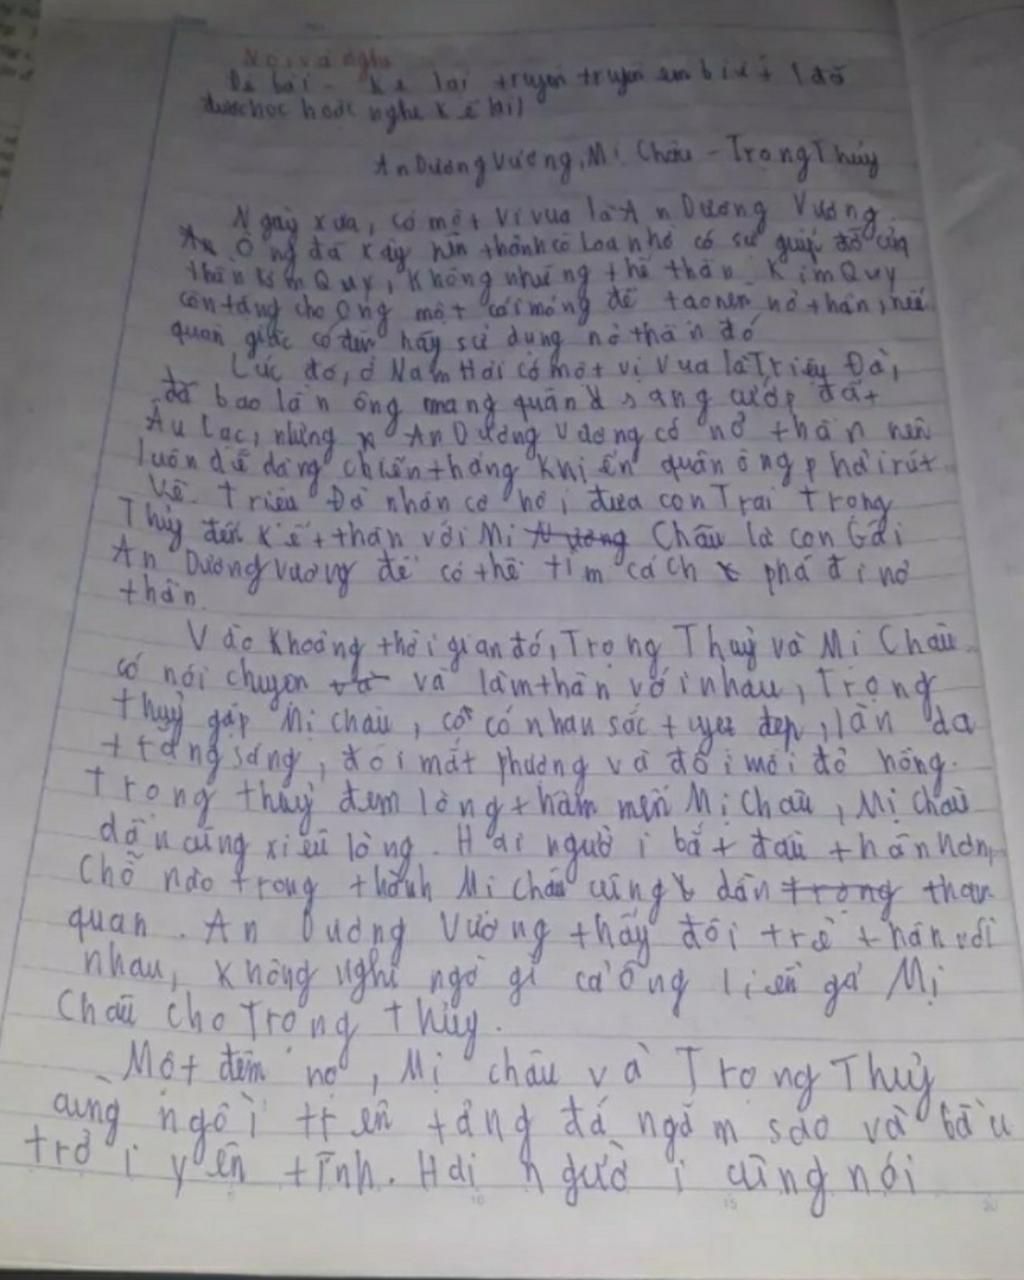 Nói và nghe
Đề bài - Kể lại truyện truyền em biết (đã
được học hoặc nghe kể lại)
An Dương Vương, Mị Châu - Trọng Thủy
Ngày xưa, có một vị vua là An Dương Vương.
Ông đã xây nên thành cổ Loa nhờ có sự giúp đỡ của
thần Kim Quy, không những thế thần Kim Quy
còn tặng cho ông một cái móng để tạo nên nỏ thần, nếu
quân giặc có đến hãy sử dụng nỏ thần đó
Lúc đó, ở Nam Hải có một vị Vua là Triệu Đà,
đã bao lần ông mang quân sang cướp đất
Âu Lạc, nhưng An Dương Vương có nỏ thần nên
luôn dễ dàng chiến thắng khiến quân ông phải rút
về. Triệu Đà nhân cơ hội đưa con Trai Trọng
Thủy đến kết thân với Mị Nương Châu là con Gái
An Dương Vương để có thể tìm cách phá đi nỏ
thần.
Vào khoảng thời gian đó, Trọng Thuỷ và Mị Châu
có nói chuyện và và làm thân với nhau, Trọng
thuỷ gặp Mị châu, có nhan sắc tuyệt đẹp, làn da
trắng sáng, đôi mắt phượng và đôi môi đỏ hồng.
Trọng thuỷ đem lòng thầm mến Mị Châu, Mị Châu
dần cũng xiêu lòng. Hai người bắt đầu thân hơn,
Chỗ nào trong thành Mị châu cũng dẫn trong tham
quan. An Dương Vương thấy đôi trẻ thân với
nhau, không nghi ngờ gì cả ông liền gả Mị
Châu cho Trọng Thủy.
Một đêm nọ, Mị châu và Trọng Thuỷ
cùng ngồi trên tảng đá ngắm sao và bầu
trời yên tĩnh. Hai người cùng nói